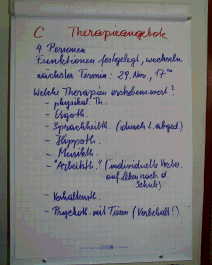 C Therapieangebote
4 Personen
Funktionen festgelegt, wechseln
nächster Termin: 29. Nov., 17⁰⁰
Welche Therapien erstrebenswert?
- physikal. Th.
- Ergoth.
- Sprachheilth. (durch L. abged.)
- Hippoth.
- Musikth.
- "Arbeitsth." (individuelle Vorber.
auf Leben nach d.
Schule)
- Verhaltensth.
- Psychoth. mit Tieren (Vorschall!)